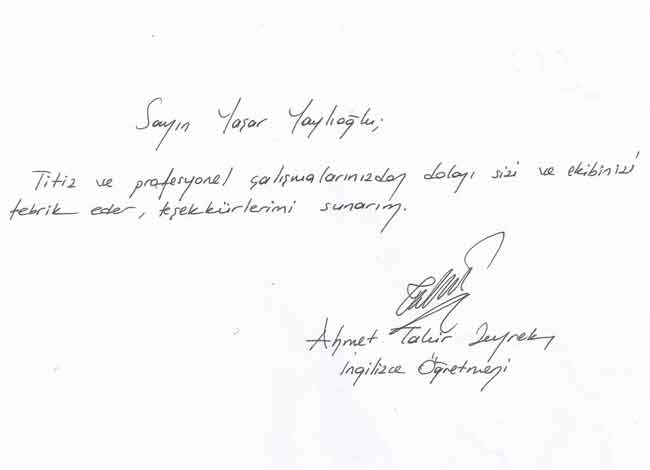 Sayın Yaşar Yaylıoğlu;
Titiz ve profesyonel çalışmalarınızdan dolayı sizi ve ekibinizi
tebrik eder, teşekkürlerimi sunarım.
Ahmet Tahir Zeyrek
İngilizce Öğretmeni